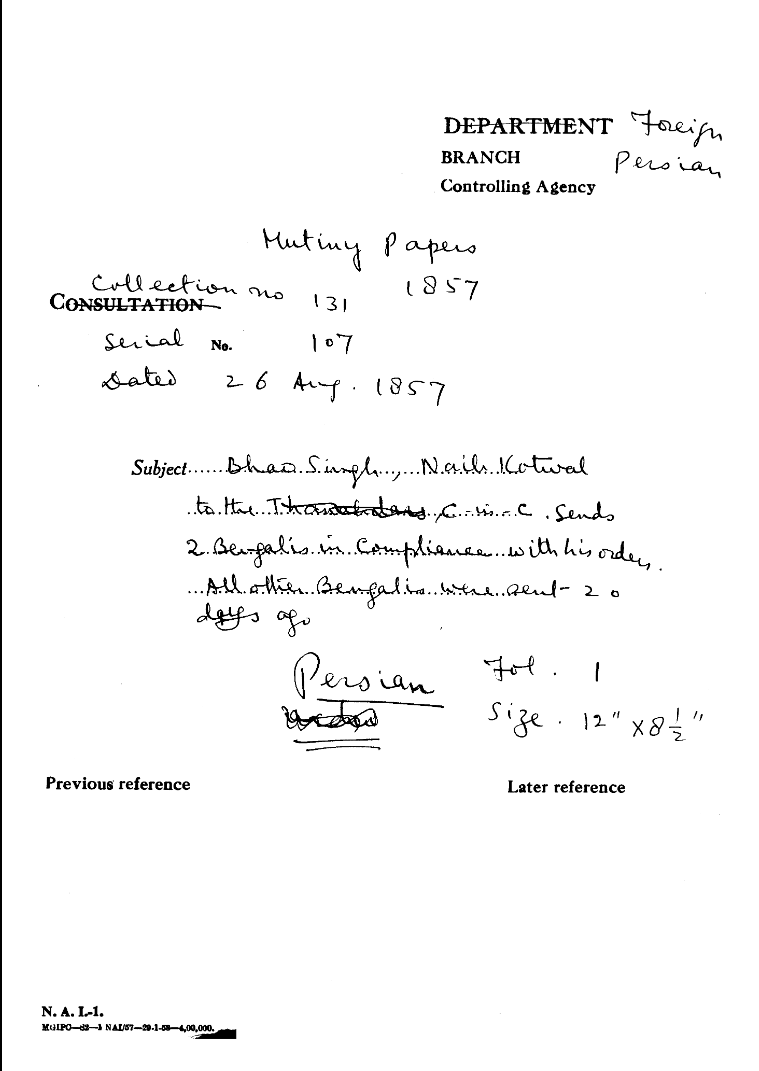 DEPARTMENT Foreign
BRANCH Persian
Controlling Agency
Mutiny Papers
1857
Collection no 131
CONSULTATION
Serial No. 107
Dated 26 Aug. 1857
Subject...... Bhao Singh, Naib Kotwal
to the Thanahdars C-in-C. Sends
2 Bengalis in Compliance with his orders.
All other Bengalis were sent 20
days ago
Persian Fol. 1
Urdu Size. 12" x 8 1/2"
Previous reference Later reference
N. A. I.-1.
MGIPC—S2—3 NAI/57—29-1-58—4,00,000.